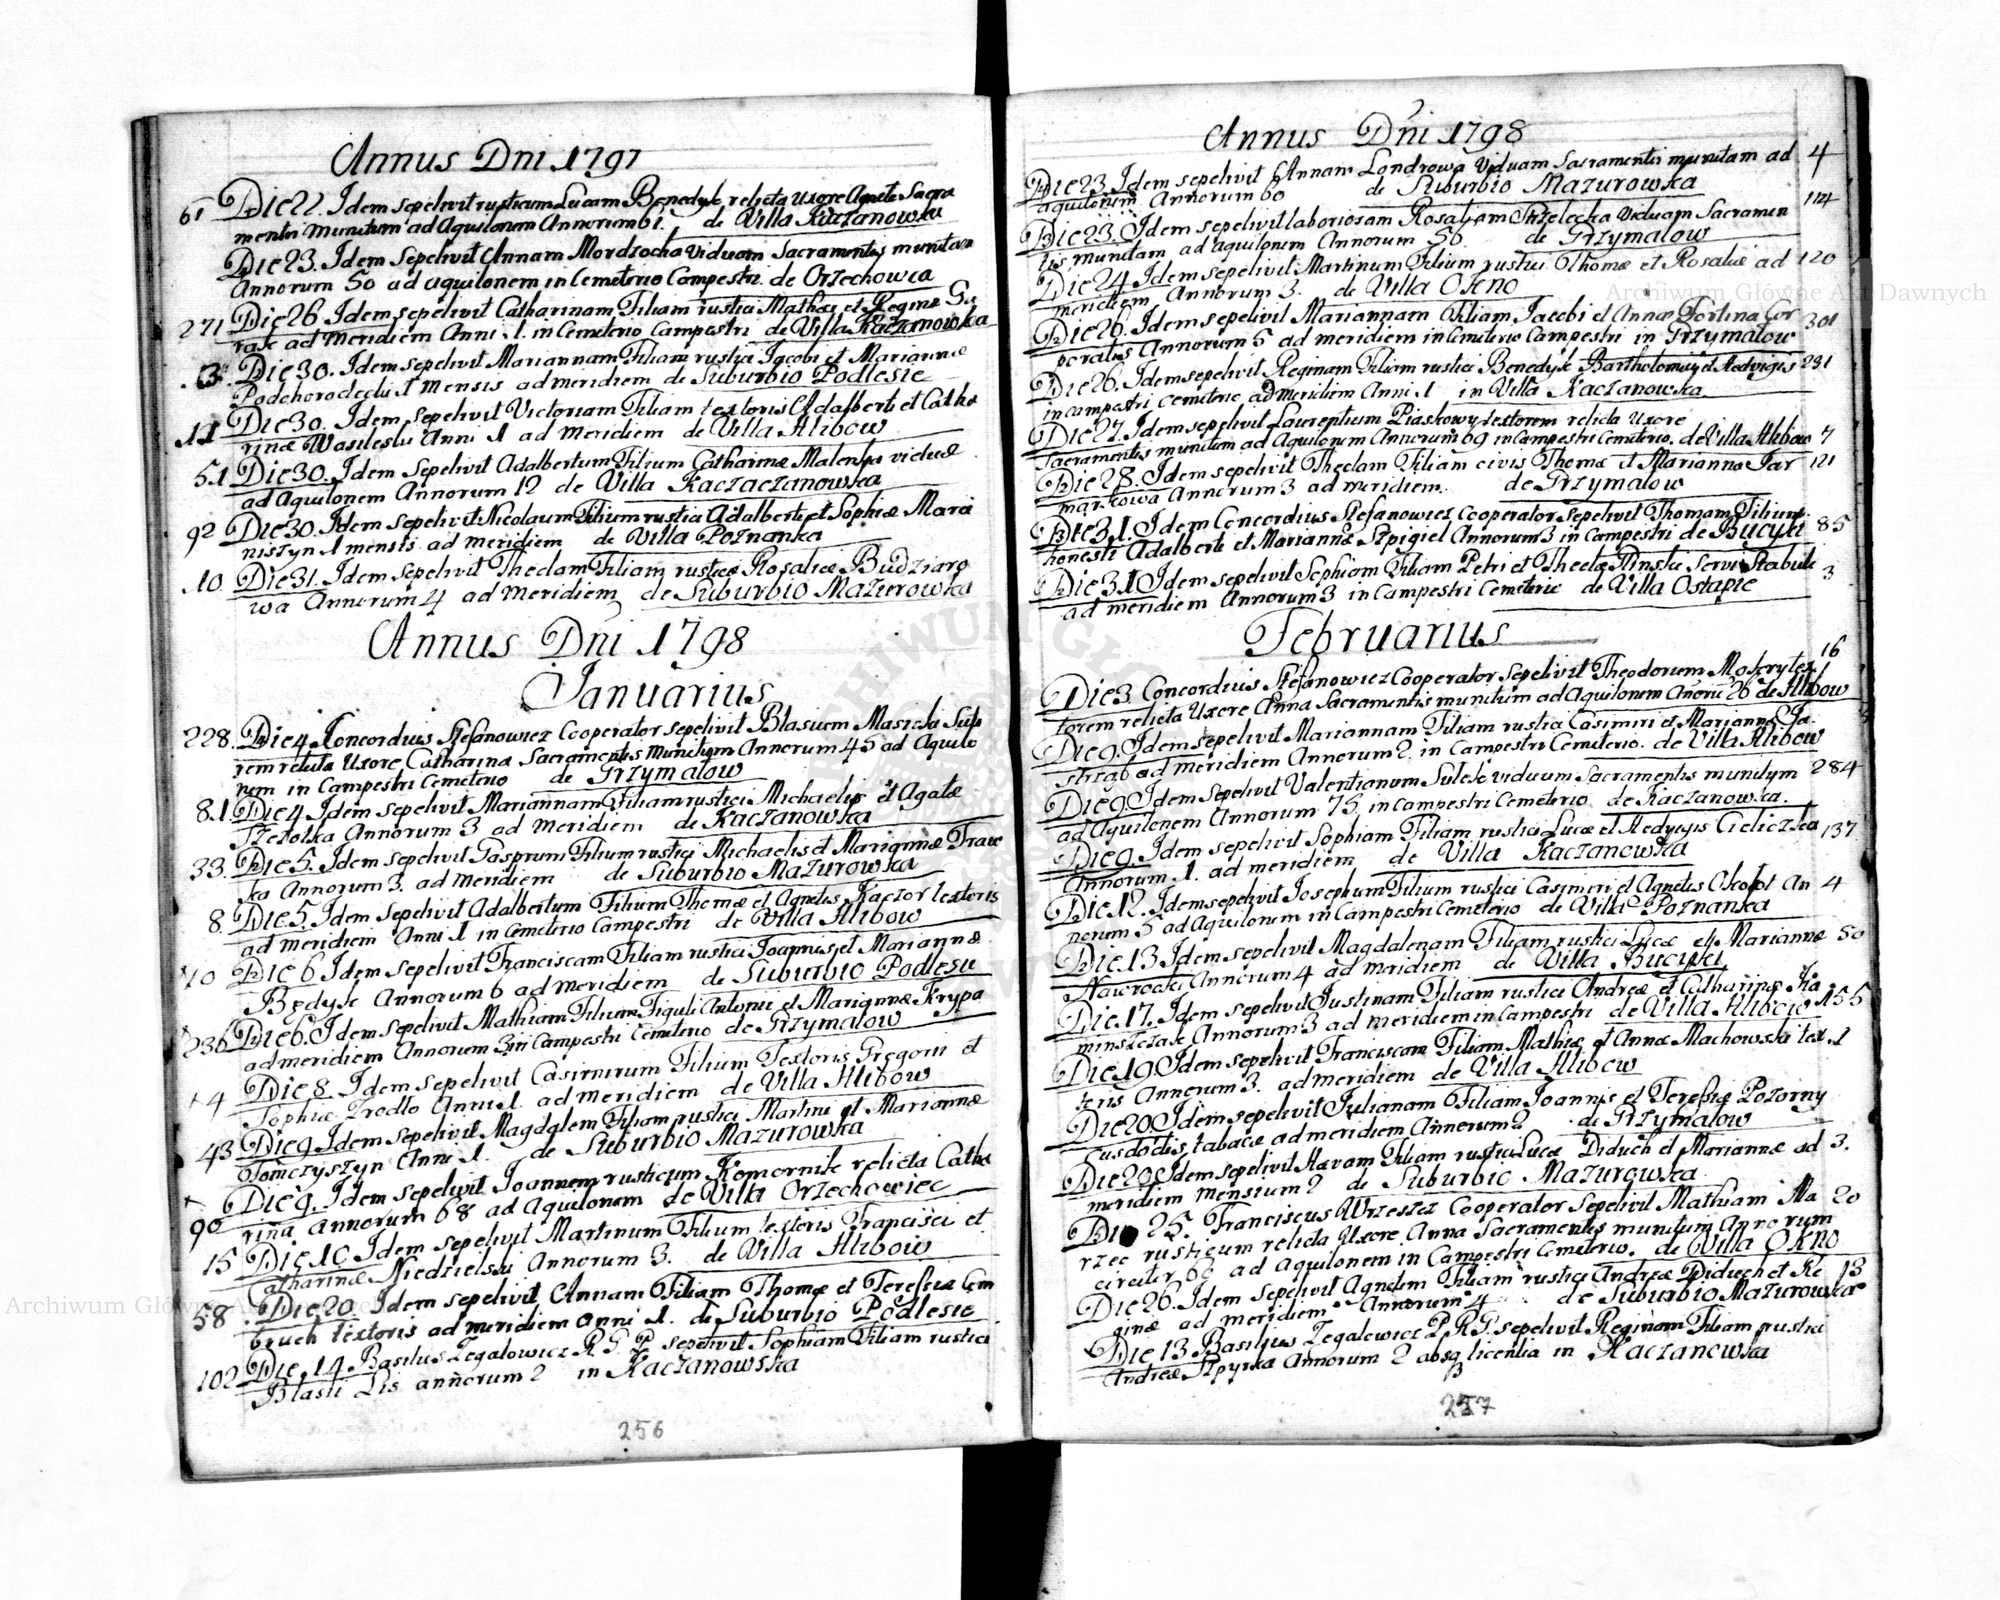 Annus Dni 1797
61 Die 22. Idem sepelivit rusticum Lucam Benedyk relicta Uxore Agnete Sacra
mentis munitum ad Aquilonem Annorum 61. de Villa Kaczanowka
Die 23. Idem Sepelivit Annam Mordzocha Viduam Sacramentis munitam
Annorum 50 ad aquilonem in Cemeterio Campestri. de Orzechowca
271 Die 26. Idem sepelivit Catharinam Filiam rustici Mathei et Reginæ
ad Meridiem Anni 1. in Cemeterio Campestri de Villa Kaczanowka
13 Die 30. Idem sepelivit Mariannam Filiam rustici Jacobi et Mariannæ
Podhorodecki 1 Mensis ad meridiem de Suburbio Podlesie
11 Die 30. Idem sepelivit Victoriam Filiam textoris Adalberti et Catha
rinæ Wasileski Anni 1 ad Meridiem de Villa Hlibow
51 Die 30. Idem Sepelivit Adalbertum Filium Catharinæ viduæ
ad Aquilonem Annorum 12 de Villa Kaczaczanowska
92 Die 30. Idem sepelivit Nicolaum Filium rustici Adalberti et Sophiæ Mari
niszyn 1 mensis ad meridiem de Villa Poznanka
10 Die 31. Idem sepelivit Theclam Filiam rusticæ Rosaliæ Budziaro
wa Annorum 4 ad Meridiem de Suburbio Mazurowka
Annus Dni 1798
Januarius
228. Die 4 Concordius Stefanowicz Cooperator sepelivit Blasium Masicki Suto
rem relicta Uxore Catharina Sacramentis munitum Annorum 45 ad Aquilo
nem in Campestri Cemeterio de Grzymalow
81 Die 4 Idem sepelivit Mariannam Filiam rustici Michaelis et Agatæ
Annorum 3 ad Meridiem de Kaczanowka
33. Die 5. Idem sepelivit Gasprum Filium rustici Michaelis et Mariannæ
ka Annorum 3. ad Meridiem de Suburbio Mazurowka
8 Die 5. Idem sepelivit Adalbertum Filium Thomæ et Agnetis Kaczor textoris
ad meridiem Anni 1 in Cemeterio Campestri de Villa Hlibow
10 Die 6 Idem sepelivit Franciscam Filiam rustici Joannis et Mariannæ
Będyk Annorum 6 ad meridiem de Suburbio Podlesie
236 Die 6. Idem sepelivit Mathiam Filium Figuli Antonii et Mariannæ Krypa
ad meridiem Annorum 3 in Campestri Cemeterio de Grzymalow
4 Die 8. Idem sepelivit Casimirum Filium Textoris Gregorii et
Sophiæ Zrodlo Anni 1. ad meridiem de Villa Hlibow
43 Die 9. Idem sepelivit Magdalem Filiam rustici Martini et Mariannæ
Tomczyszyn Anni 1. de Suburbio Mazurowka
90 Die 9. Idem sepelivit Joannem rusticum Komornik relicta Catha
rina annorum 68 ad Aquilonem de Villa Orzechowiec
15 Die 10 Idem sepelivit Martinum Filium textoris Francisci et
Catharinæ Niedzielski Annorum 3. de Villa Hlibow
58 Die 20. Idem sepelivit Annam Filiam Thomæ et Teresiæ Cem
bruch textoris ad meridiem anni 1. de Suburbio Podlesie
102 Die 14. Basilius Zegalowicz R. G. P. sepelivit Sophiam Filiam rustici
Blasii Lis annorum 2 in Kaczanowska
256
Annus Dni 1798
Die 23. Idem sepelivit Annam Londrowa Viduam Sacramentis munitam ad 4
aquilonem Annorum 60 de Suburbio Mazurowka
Die 23. Idem sepelivit laboriosam Rosaliam Strzelecka Viduam Sacramen 114
tis munitam ad aquilonem Annorum 56. de Grzymalow
Die 24 Idem sepelivit Martinum Filium rustici Thomæ et Rosaliæ ad 120
meridiem Annorum 3. de Villa Okno
Die 26. Idem sepelivit Mariannam Filiam Jacobi et Annæ Fortina Cor 301
poralis Annorum 5 ad meridiem in Cemeterio Campestri in Grzymalow
Die 26. Idem sepelivit Reginam Filiam rustici Benedyk Bartholomæi et Hedvigis 231
in campestri cemeterio ad Meridiem Anni 1 in Villa Kaczanowska
Die 27. Idem sepelivit Laurentium Piaskowy textorem relicta Uxore
Sacramentis munitum ad Aquilonem Annorum 69 in Campestri Cemeterio. de Villa Hlibow 7
Die 28. Idem sepelivit Theclam Filiam civis Thomæ et Mariannæ Jar 121
markowa Annorum 3 ad meridiem. de Grzymalow
Die 31. Idem Concordius Stefanowicz Cooperator Sepelivit Thomam Filium
honesti Adalberti et Mariannæ Szpigiel Annorum 3 in campestri de Bucyki 85
Die 31 Idem sepelivit Sophiam Filiam Petri et Theclæ Servi Stabuli 3
ad meridiem Annorum 3 in Campestri Cemeterio de Villa Ostapie
Februarius
16
Die 3 Concordius Stefanowicz Cooperator Sepelivit Theodorum
torem relicta Uxore Anna Sacramentis munitum ad Aquilonem Anoru 26 de Hlibow
Die 9. Idem sepelivit Mariannam Filiam rustici Casimiri et Mariannæ
ad meridiem Annorum 2 in Campestri Cemeterio. de Villa Hlibow
Die 9 Idem sepelivit Valentianum Sulek viduum Sacramentis munitum 284
ad Aquilonem Annorum 75. in campestri Cemeterio de Kaczanowka.
Die 9. Idem sepelivit Sophiam Filiam rustici Lucæ et Hedvigis Cieliczka 137
Annorum 1. ad meridiem de Villa Kaczanowka
Die 12. Idem sepelivit Josephum Filium rustici Casimiri et Agnetis Okolot An 4
norum 5 ad Aquilonem in Campestri Cemeterio de Villa Poznanka
Die 13 Idem sepelivit Magdalenam Filiam rustici Lucæ et Mariannæ 50
Nawrocki Annorum 4 ad meridiem de Villa Bucyki
Die 17. Idem sepelivit Justinam Filiam rustici Andreæ et Catharinæ Ka 155
minszczak Annorum 3 ad meridiem in Campestri de Villa
Die 19 Idem sepelivit Franciscam Filiam Mathiæ et Annæ Machowski tex 1
toris Annorum 3. ad meridiem de Villa Hlibow
Die 20 Idem sepelivit Julianam Filiam Joannis et Teresiæ Pozorny
Cusdodis tabacæ ad meridiem Annorum 2 de Grzymalow
Die 20. Idem sepelivit Havam Filiam rustici Lucæ Diduch et Mariannæ ad 3.
meridiem mensium 2 de Suburbio Mazurowka
Die 25. Franciscus Wrzeszcz Cooperator Sepelivit Mathiam Ma 20
rzec rusticum relicta Uxore Anna Sacramentis munitum Annorum
circiter 60 ad Aquilonem in Campestri Cemeterio. de Villa Okno
Die 26. Idem Sepelivit Agnetem Filiam rustici Andreæ Diduch et Re 13
ginæ ad meridiem Annorum 4 de Suburbio Mazurowka
Die 13 Basilius Zegalowicz P. R. G. sepelivit Reginam Filiam rustici
Andreæ Szpyrka Annorum 2 absq licentia in Kaczanowka
257
Archiwum Główne Akt Dawnych
Archiwum Główne Akt Dawnych